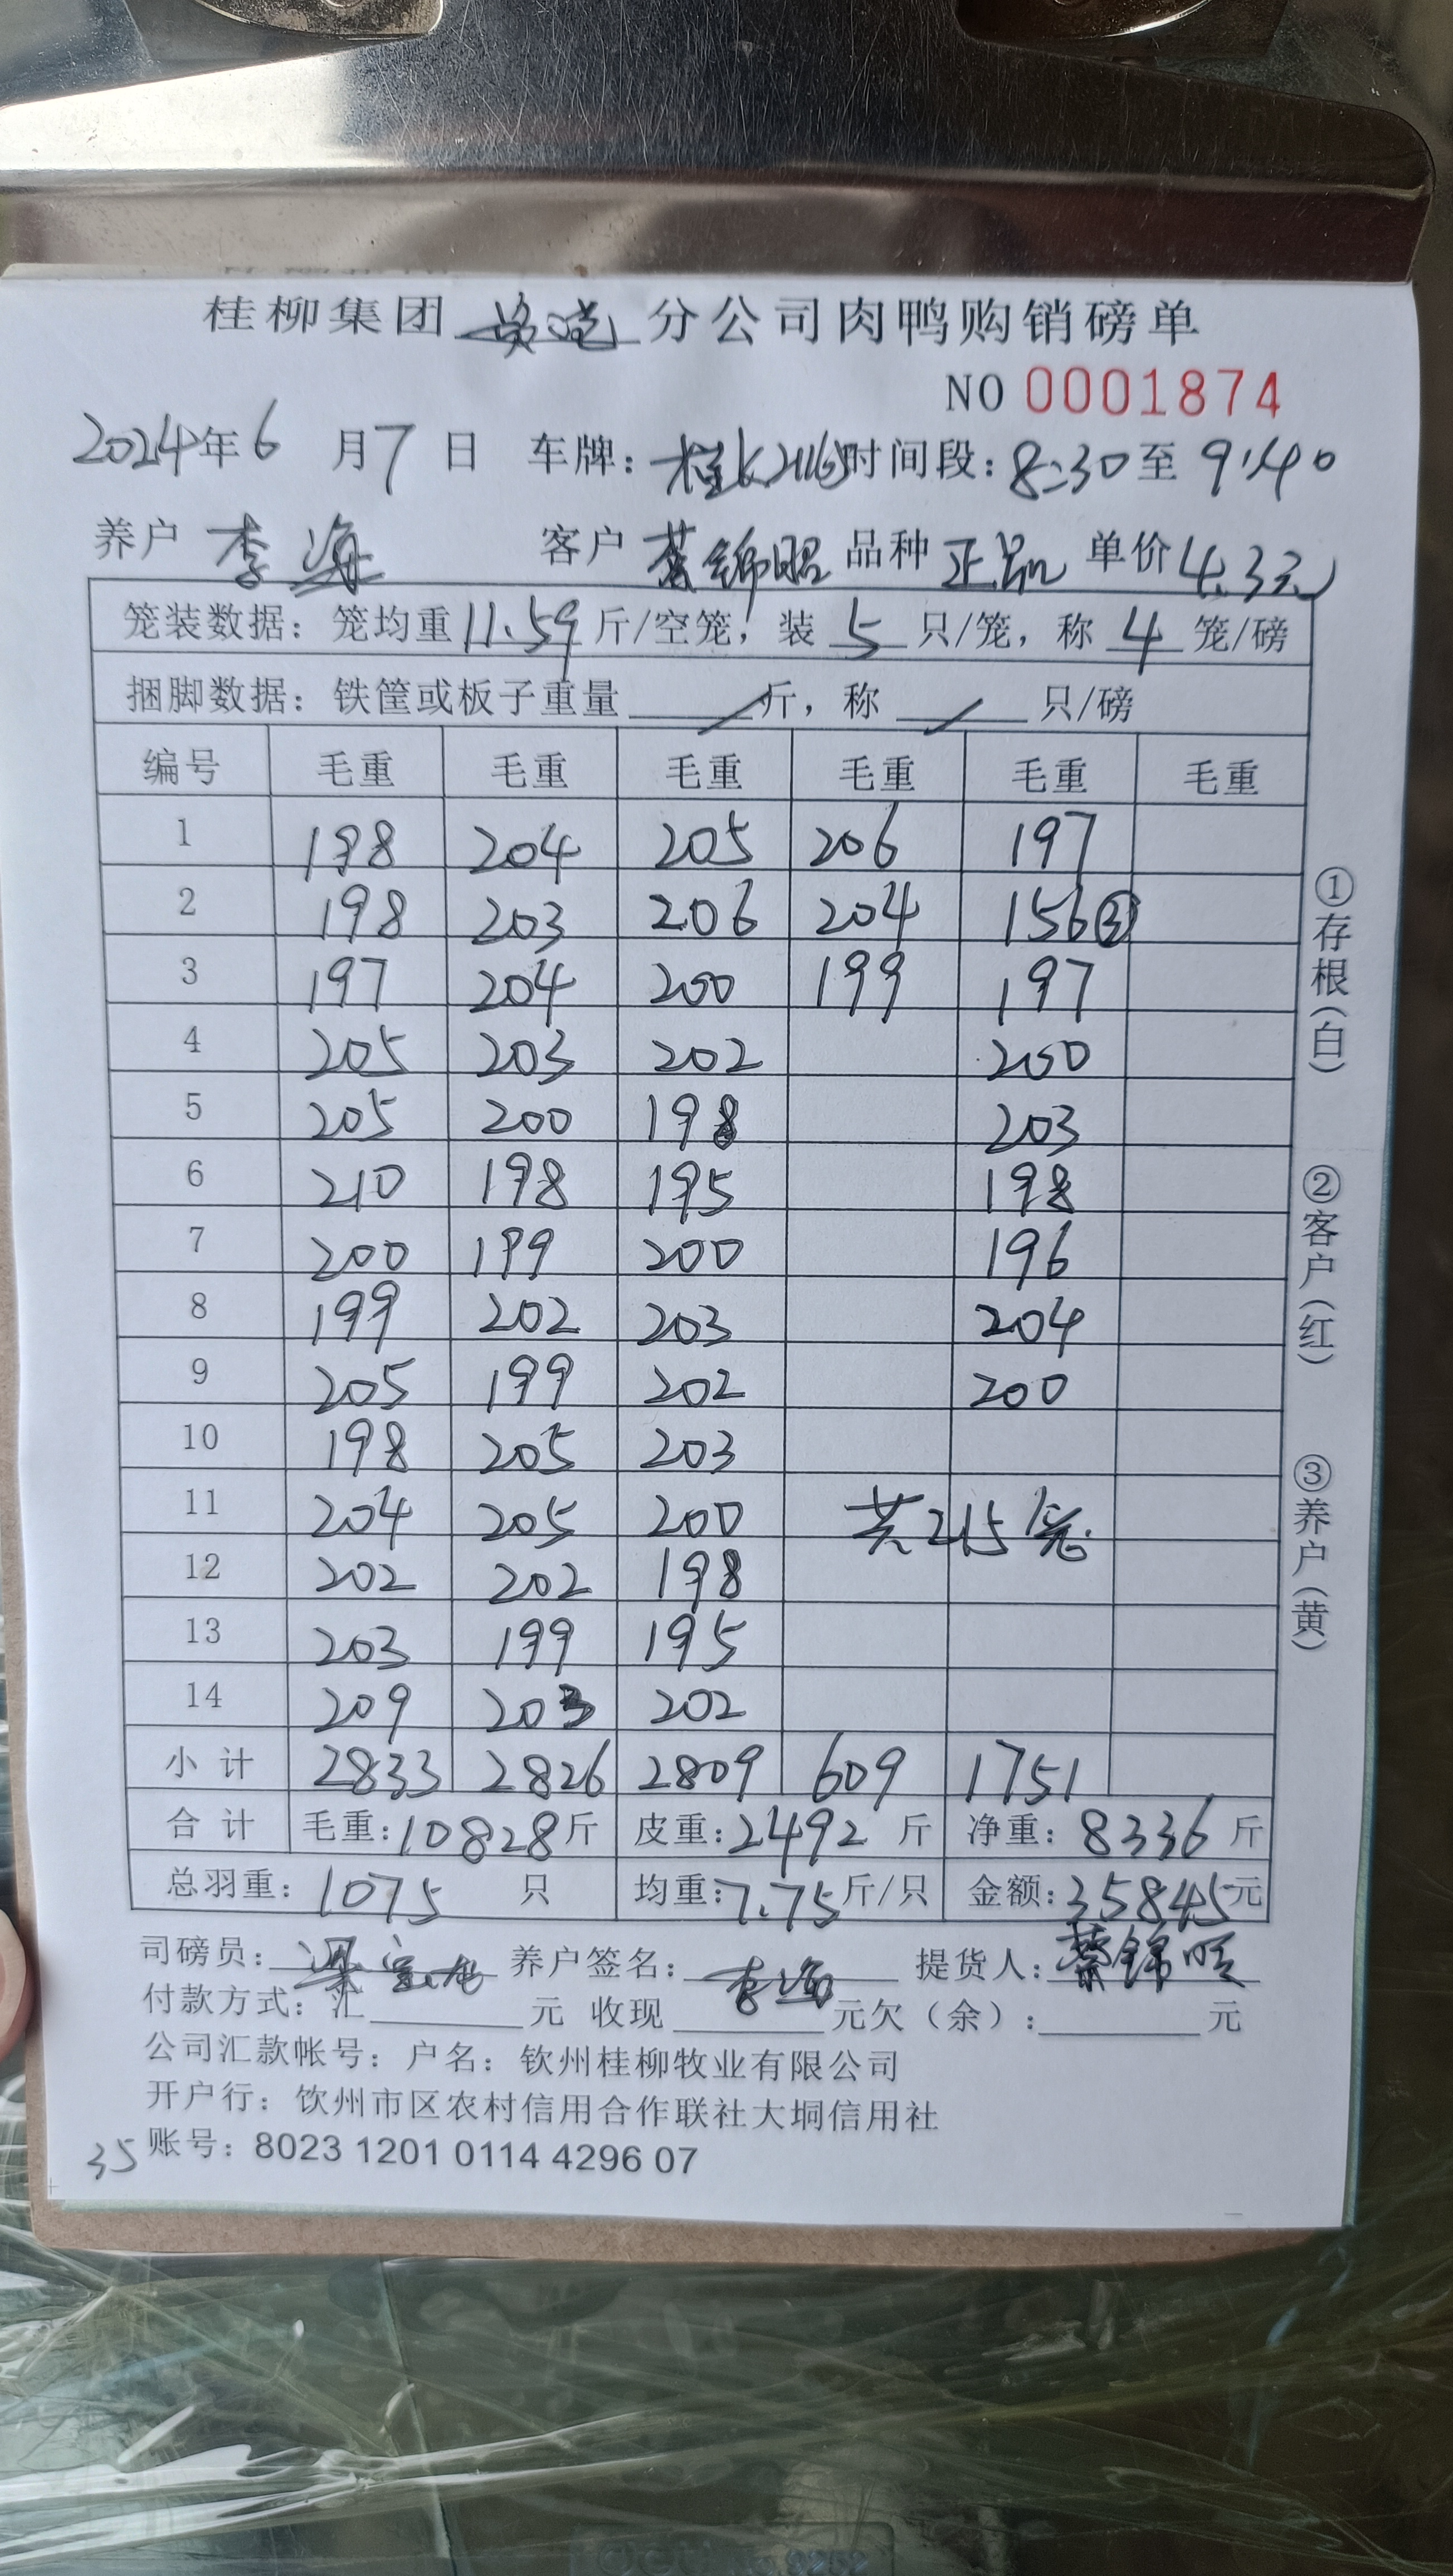 桂柳集团 分公司肉鸭购销磅单
NO 0001874
2024年6月7日 车牌: 时间段:8:30至9:40
养户 李海 客户 蔡锦昭 品种 正品 单价4.3元
笼装数据: 笼均重11.59斤/空笼, 装5只/笼, 称4笼/磅
捆脚数据: 铁筐或板子重量 / 斤, 称 / 只/磅
编号 毛重 毛重 毛重 毛重 毛重 毛重
1 198 204 205 206 197
2 198 203 206 204 156③
3 197 204 200 199 197
4 205 203 202 200
5 205 200 198 203
6 210 198 195 198
7 200 199 200 196
8 199 202 203 204
9 205 199 202 200
10 198 205 203
11 204 205 200 共215笼
12 202 202 198
13 203 199 195
14 209 203 202
小计 2833 2826 2809 609 1751
合计 毛重:10828斤 皮重:2492斤 净重:8336斤
总羽重:1075只 均重:7.75斤/只 金额:35845元
司磅员: 养户签名:李海 提货人:蔡锦
付款方式: 汇 元 收现 元欠(余): 元
公司汇款帐号: 户名: 钦州桂柳牧业有限公司
开户行: 饮州市区农村信用合作联社大垌信用社
35 账号: 8023 1201 0114 4296 07
①存根(白)
②客户(红)
③养户(黄)